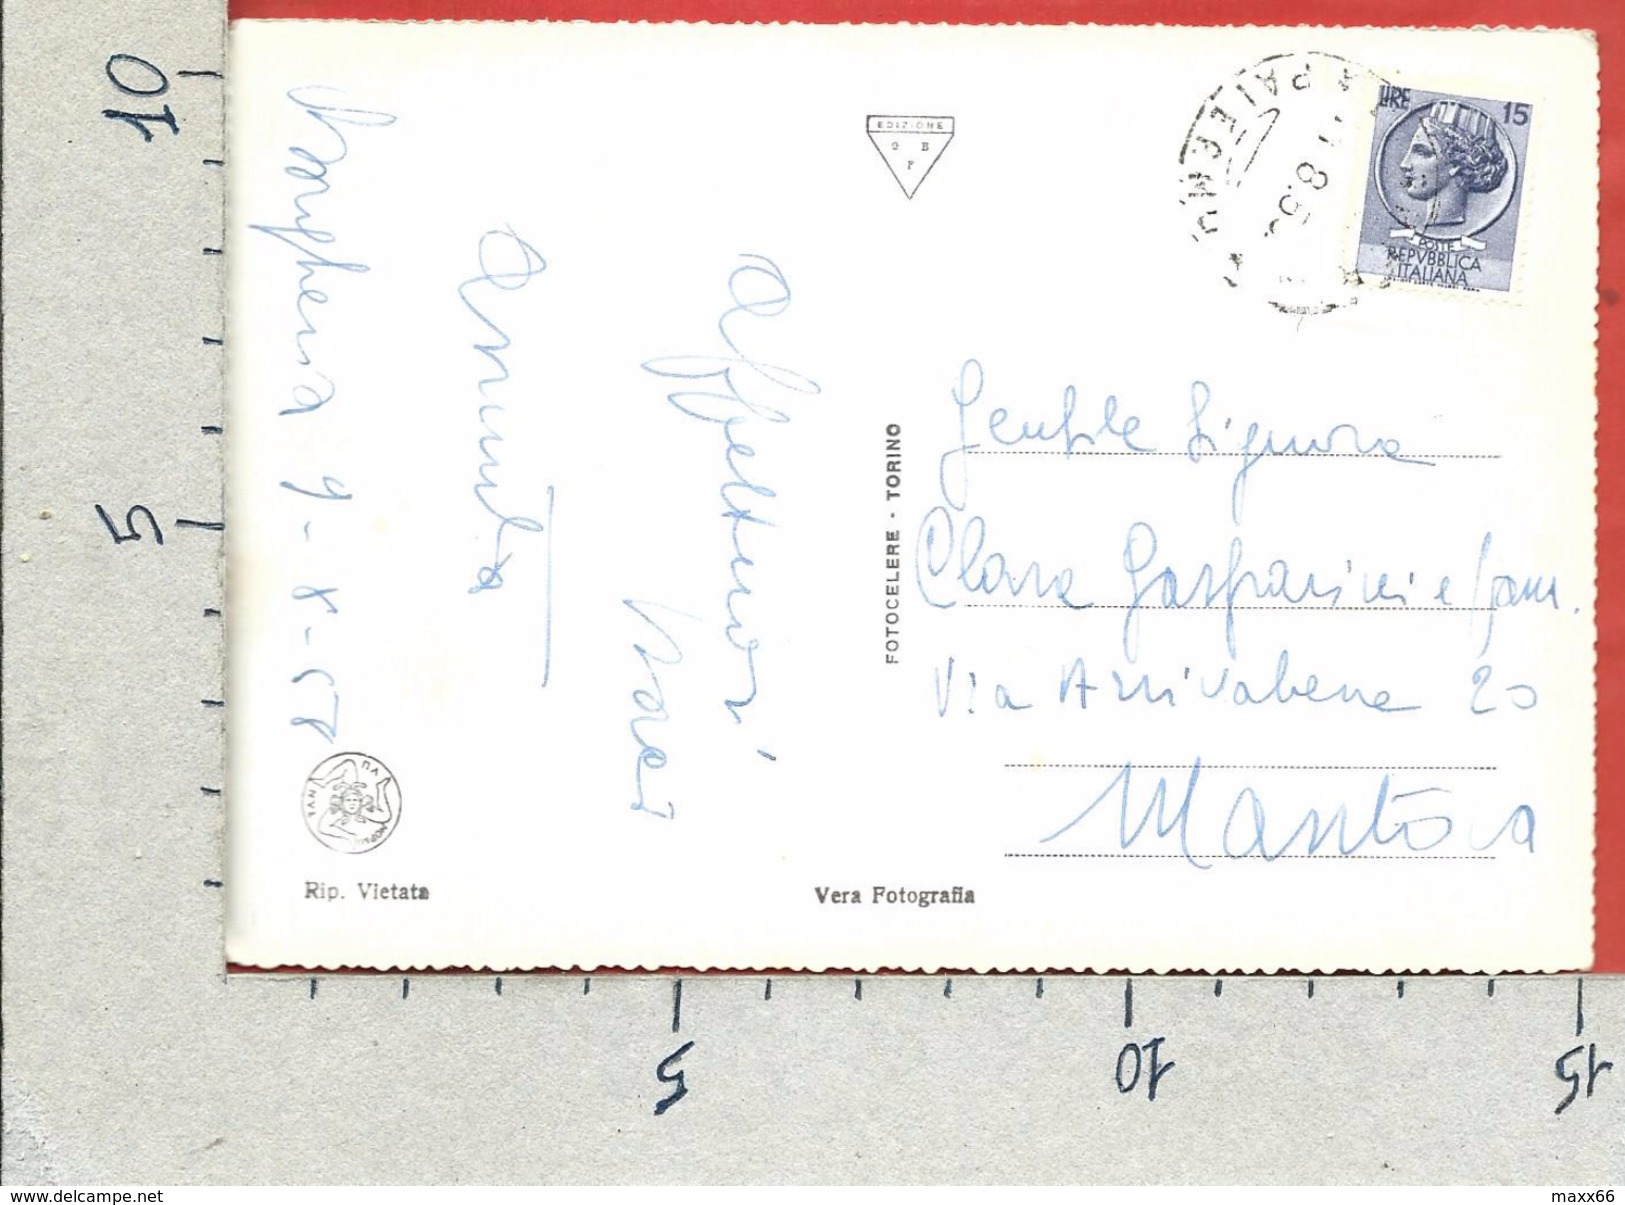 10
5
Margherita 9-8-58
Affettuosi
baci
Annita
EDIZIONE
G B
P
FOTOCELERE - TORINO
Rip. Vietata
Vera Fotografia
LIRE 15
POSTE
REPVBBLICA
ITALIANA
PALERMO
Gentile Signora
Clara Gasparini e fam.
Via Arrivabene 20
Mantova
5
10
15
www.delcampe.net
maxx66